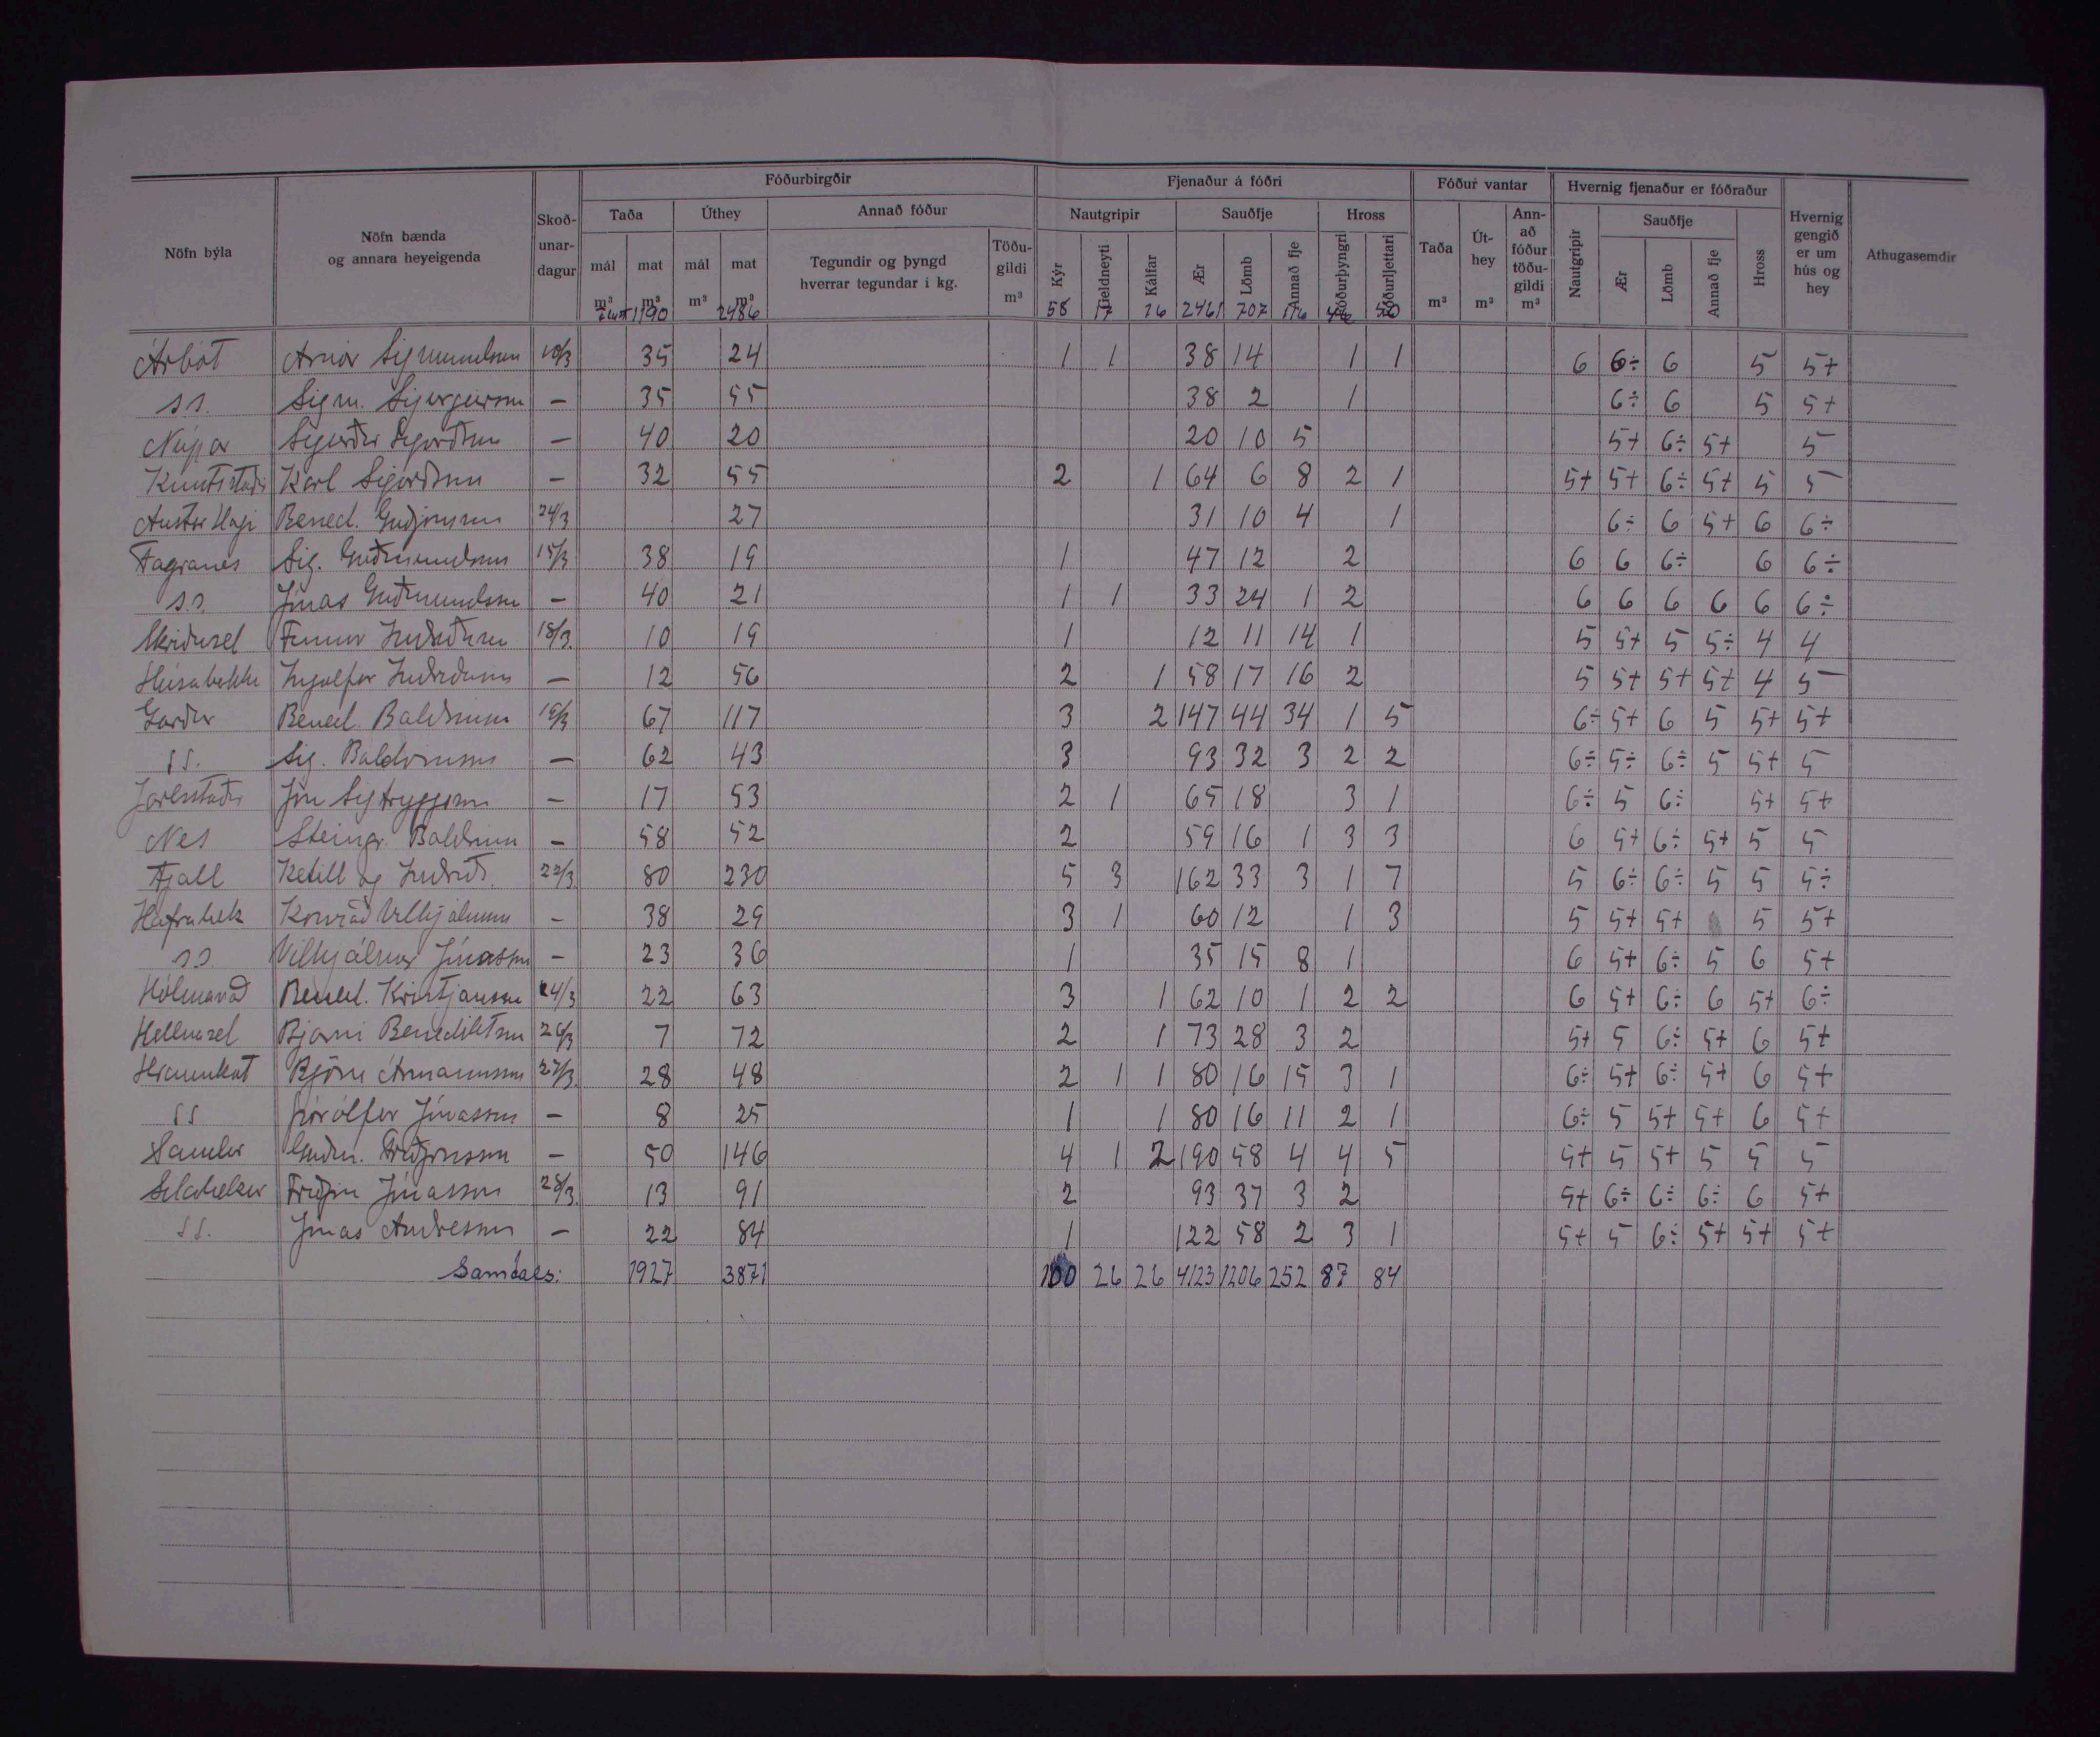 Fóðurbirgðir Fjenaður á fóðri Fóður vantar Hvernig fjenaður er fóðraður
Nöfn býla Nöfn bænda og annara heyeigenda Skoðunardagur Taða Úthey Annað fóður Nautgripir Sauðfje Hross Taða Úthey Annað fóður töðugildi Nautgripir Sauðfje Hross Hvernig gengið er um hús og hey Athugasemdir
mál mat mál mat Tegundir og þyngd hverrar tegundar í kg. Töðugildi Kýr Geldneyti Kálfar Ær Lömb Annað fje Fóðurþyngri Fóðurljettari Ær Lömb Annað fje
m³ m³ m³ m³ m³ m³ m³ m³
1190 2486 58 17 16 2461 707 116 46 50
Árbót Arnór Sigmundsson 10/3 35 24 1 1 38 14 1 1 6 6÷ 6 5 5+
s.s. Sigm. Sigurgeirsson — 35 55 38 2 1 6÷ 6 5 5+
Núpar Sigurður Sigurðsson — 40 20 20 10 5 5+ 6÷ 5+ 5
Knútsstaðir Karl Sigurðsson — 32 55 2 1 64 6 8 2 1 5+ 5+ 6÷ 5+ 5 5
Austur Hagi Bened. Guðjónsson 24/3 27 31 10 4 1 6÷ 6 5+ 6 6÷
Fagranes Sig. Guðmundsson 15/3 38 19 1 47 12 2 6 6 6÷ 6 6÷
s.s. Jónas Guðmundsson — 40 21 1 1 33 24 1 2 6 6 6 6 6 6÷
Skriðusel Finnur Indriðason 18/3 10 19 1 12 11 14 1 5 5+ 5 5÷ 4 4
Húsabakki Ingólfur Indriðason — 12 56 2 1 58 17 16 2 5 5+ 5+ 5+ 4 5
Garður Bened. Baldvinsson 19/3 67 117 3 2 147 44 34 1 5 6÷ 5+ 6 5 5+ 5+
s.s. Sig. Baldvinsson — 62 43 3 93 32 3 2 2 6÷ 5÷ 6÷ 5 5+ 5
Jarlsstaðir Jón Sigtryggsson — 17 53 2 1 65 18 3 1 6÷ 5 6÷ 5+ 5+
Nes Steingr. Baldvinsson — 58 52 2 59 16 1 3 3 6 5+ 6÷ 5+ 5 5
Fjall Ketill og Indriði. 22/3 80 230 5 3 162 33 3 1 7 5 6÷ 6÷ 5 5 5÷
Hafralæk Konráð Vilhjálmsson — 38 29 3 1 60 12 1 3 5 5+ 5+ 5 5+
s.s. Vilhjálmur Jónasson — 23 36 1 35 15 8 1 6 5+ 6÷ 5 6 5+
Hólmavað Bened. Kristjánsson 24/3 22 63 3 1 62 10 1 2 2 6 5+ 6÷ 6 5+ 6÷
Hellnasel Bjarni Benediktsson 26/3 7 72 2 1 73 28 3 2 5+ 5 6÷ 5+ 6 5+
Hraunkot Björn Ármannsson 27/3 28 48 2 1 1 80 16 15 3 1 6÷ 5+ 6÷ 5+ 6 5+
s.s. Þórólfur Jónasson — 8 25 1 1 80 16 11 2 1 6÷ 5 5+ 5+ 6 5+
Sandur Guðm. Friðjónsson — 50 146 4 1 2 190 58 4 4 5 5+ 5 5+ 5 5 5
Sílalækur Friðjón Jónasson 28/3 13 91 2 93 37 3 2 5+ 6÷ 6÷ 6÷ 6 5+
s.s. Jónas Andrésson — 22 84 1 122 58 2 3 1 5+ 5 6÷ 5+ 5+ 5+
Samtals: 1927 3871 100 26 26 4123 1206 252 87 84